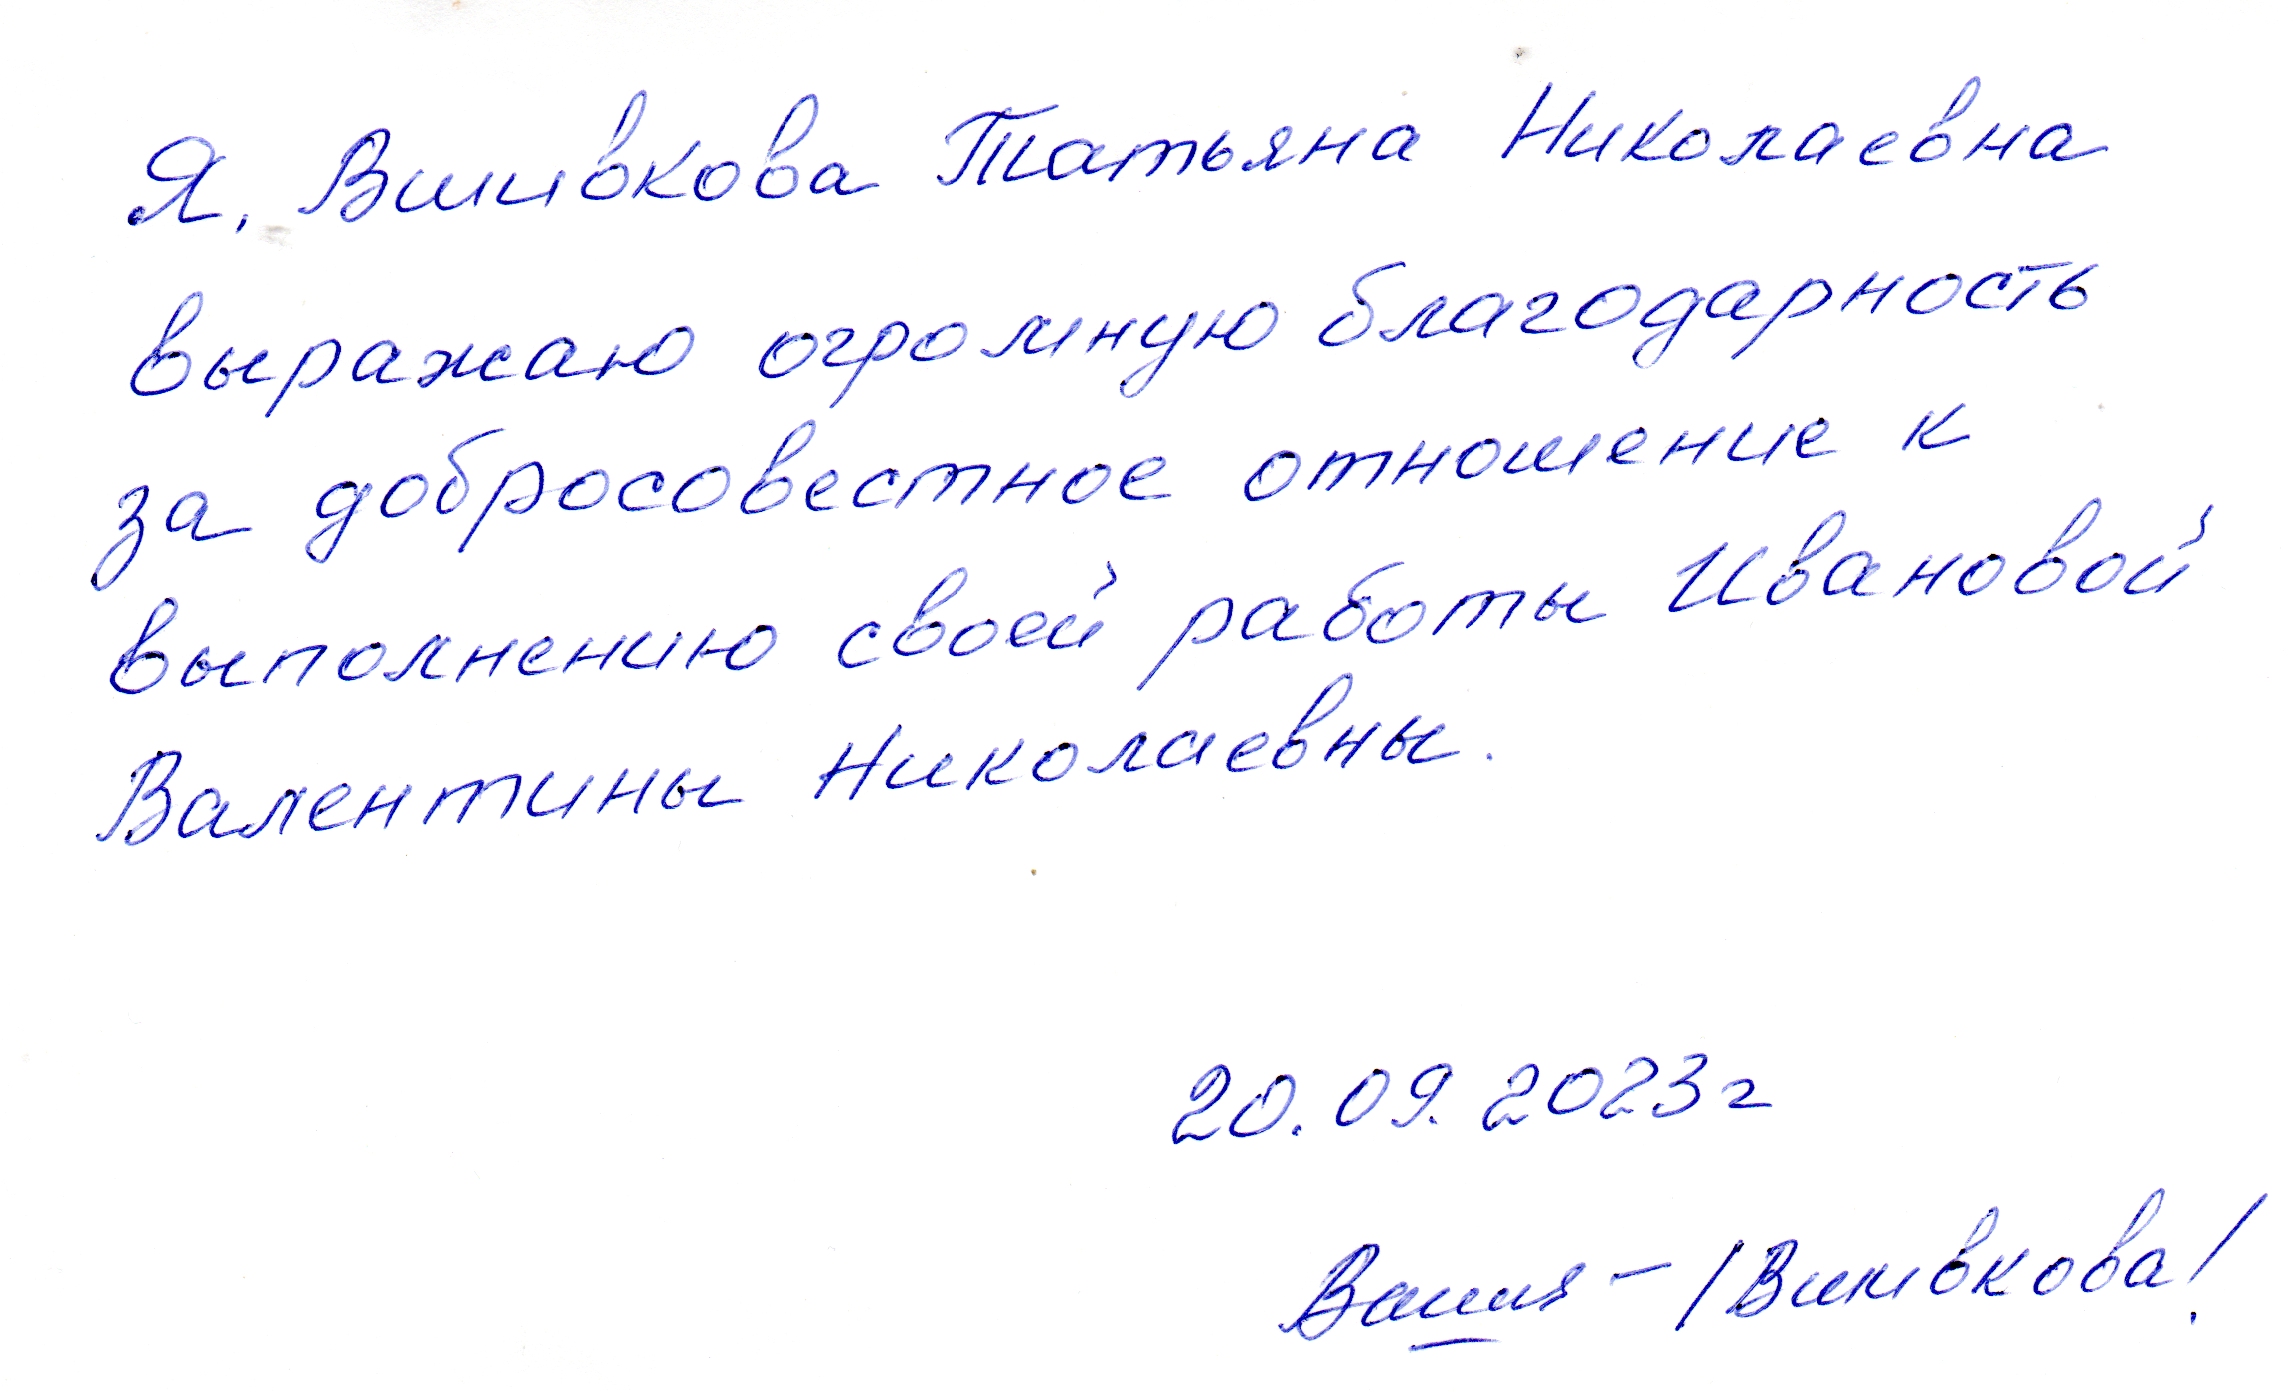 Я, Вшивкова Татьяна Николаевна
выражаю огромную благодарность
за добросовестное отношение к
выполнению своей работы Ивановой
Валентины Николаевны.
20.09.2023г
/Вшивкова/